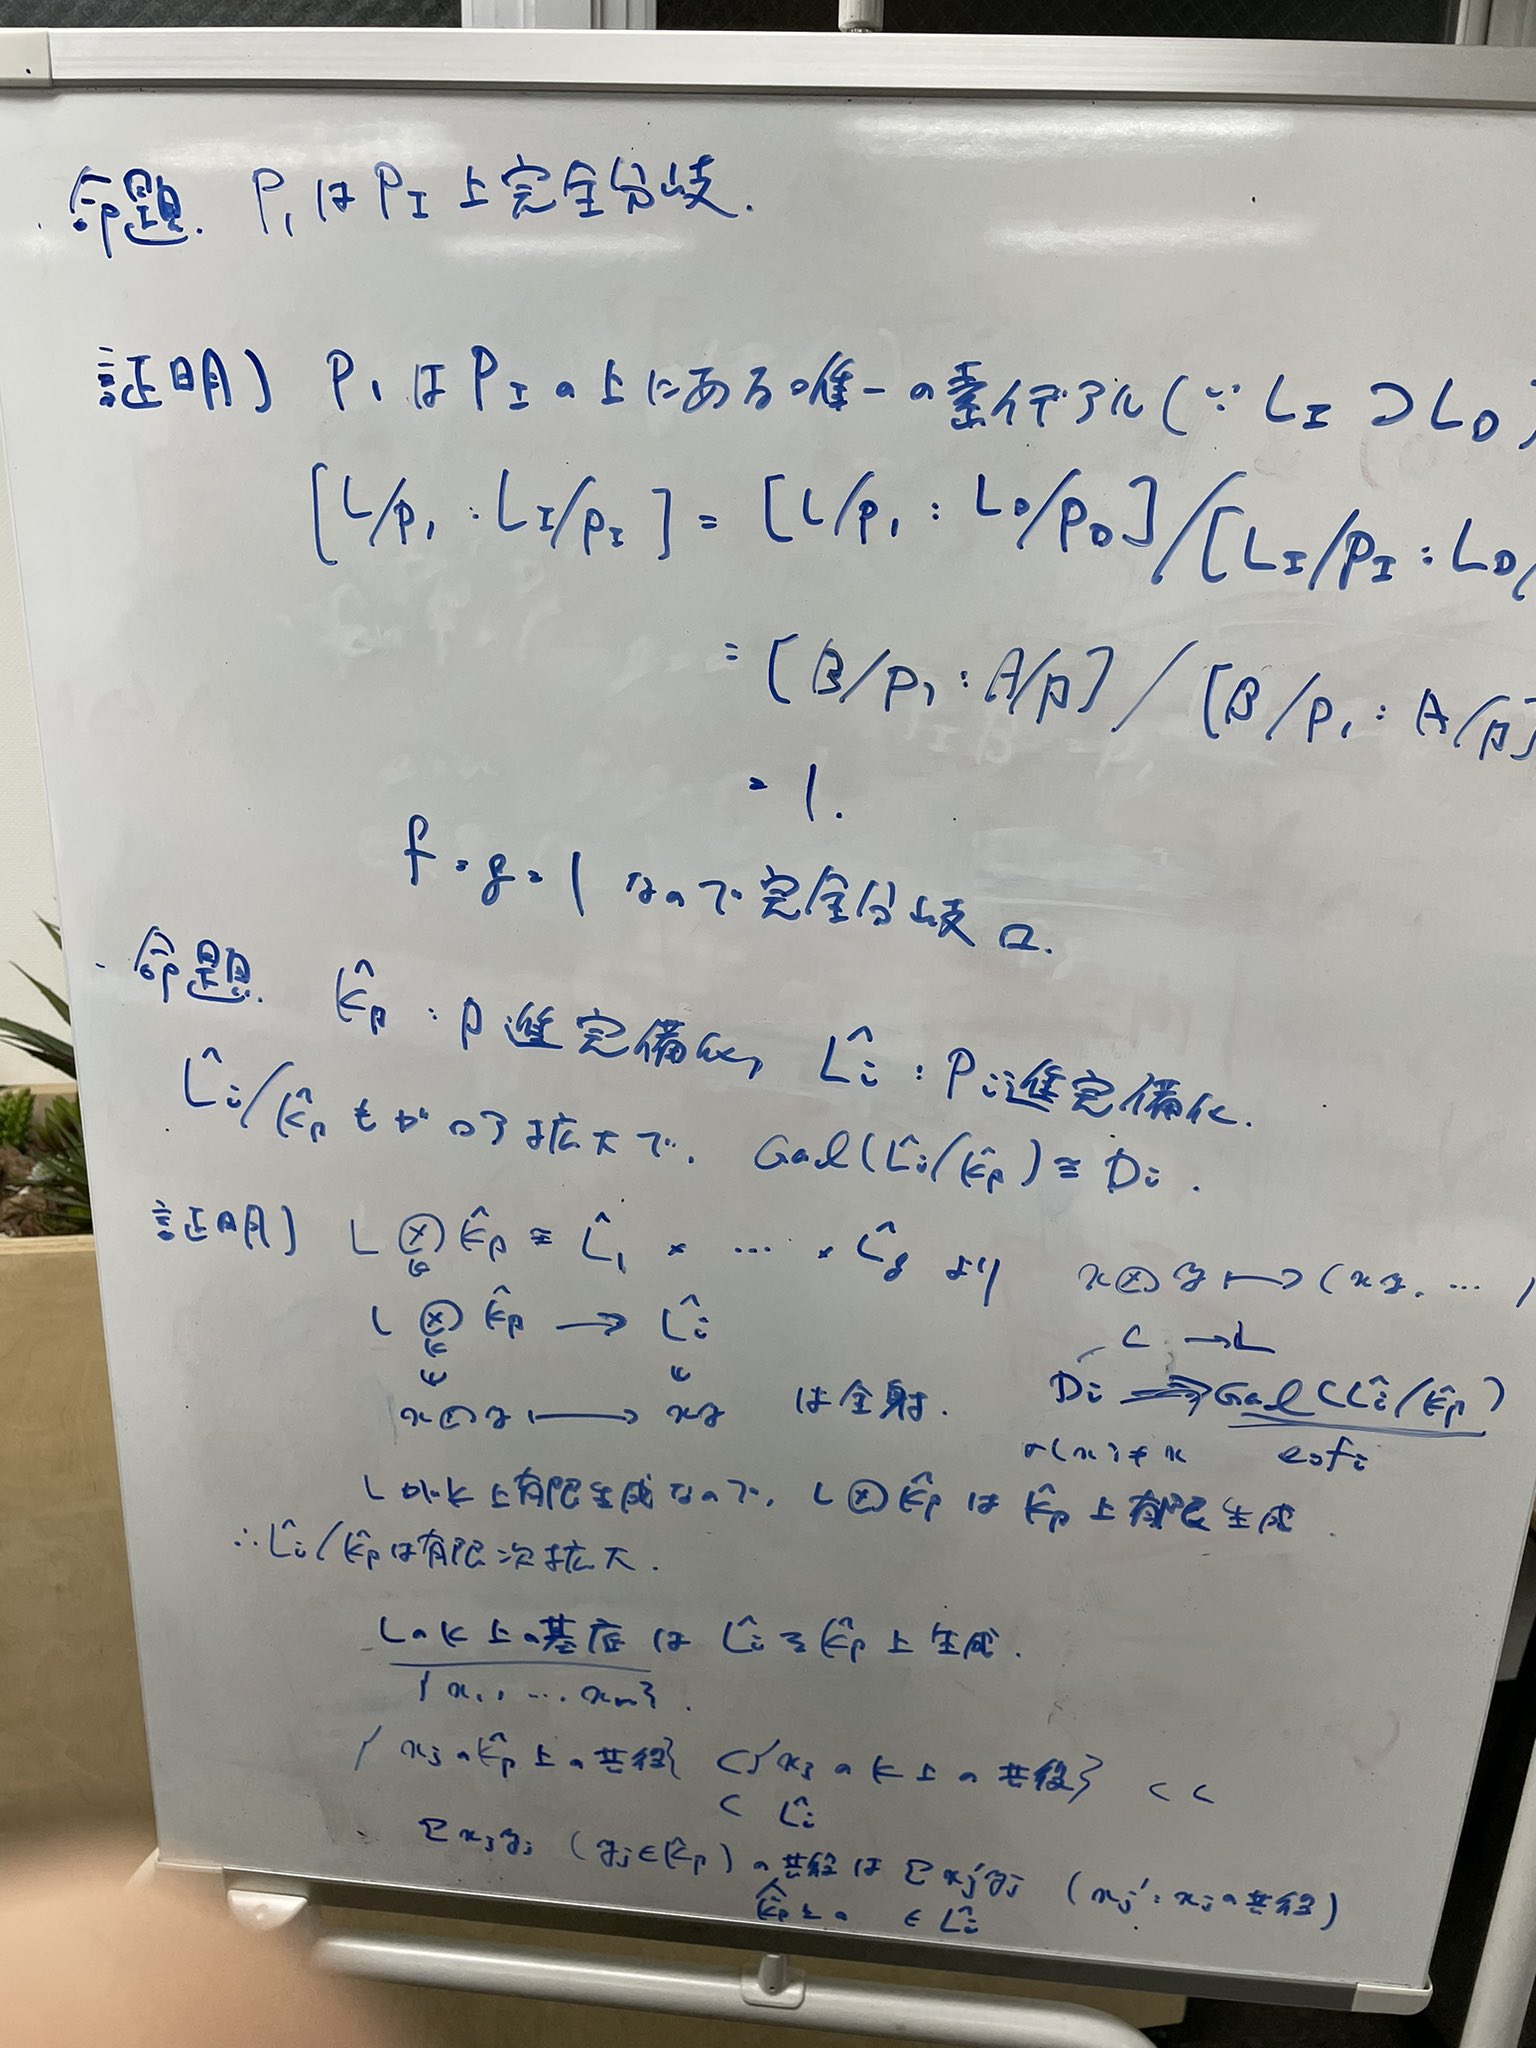 命題. P₁ は P_I 上完全分岐.
証明) P₁ は P_I の上にある唯一の素イデアル (∵ L_I ⊃ L_D)
[L/p₁ : L_I/p_I] = [L/p₁ : L_D/p_D] / [L_I/p_I : L_D/
= [B/p₁ : A/p] / [B/p₁ : A/p]
= 1.
f = g = 1 なので完全分岐 □.
命題. K̂_p : p 進完備化, L̂_i : P_i 進完備化.
L̂_i/K̂_p もガロア拡大で, Gal(L̂_i/K̂_p) ≅ D_i.
証明) L ⊗_K K̂_p ≅ L̂_1 × … × L̂_g より x⊗y ↦ (xy, …,
L ⊗_K K̂_p → L̂_i
L → L
x⊗y ↦ xy は全射.
D_i → Gal(L̂_i/K̂_p)
σ(x) ≠ x e_i f_i
L が K 上有限生成なので, L ⊗ K̂_p は K̂_p 上有限生成.
∴ L̂_i/K̂_p は有限次拡大.
L の K 上の基底は L̂_i を K̂_p 上生成.
{x₁, … x_n}.
{x_j の K̂_p 上の共役} ⊂ {x_j の K 上の共役} ⊂ L
⊂ L̂_i
Σ x_j y_j (y_j ∈ K̂_p) の共役は Σ x_j' y_j (x_j' : x_j の共役)
K̂_p 上の ∈ L̂_i